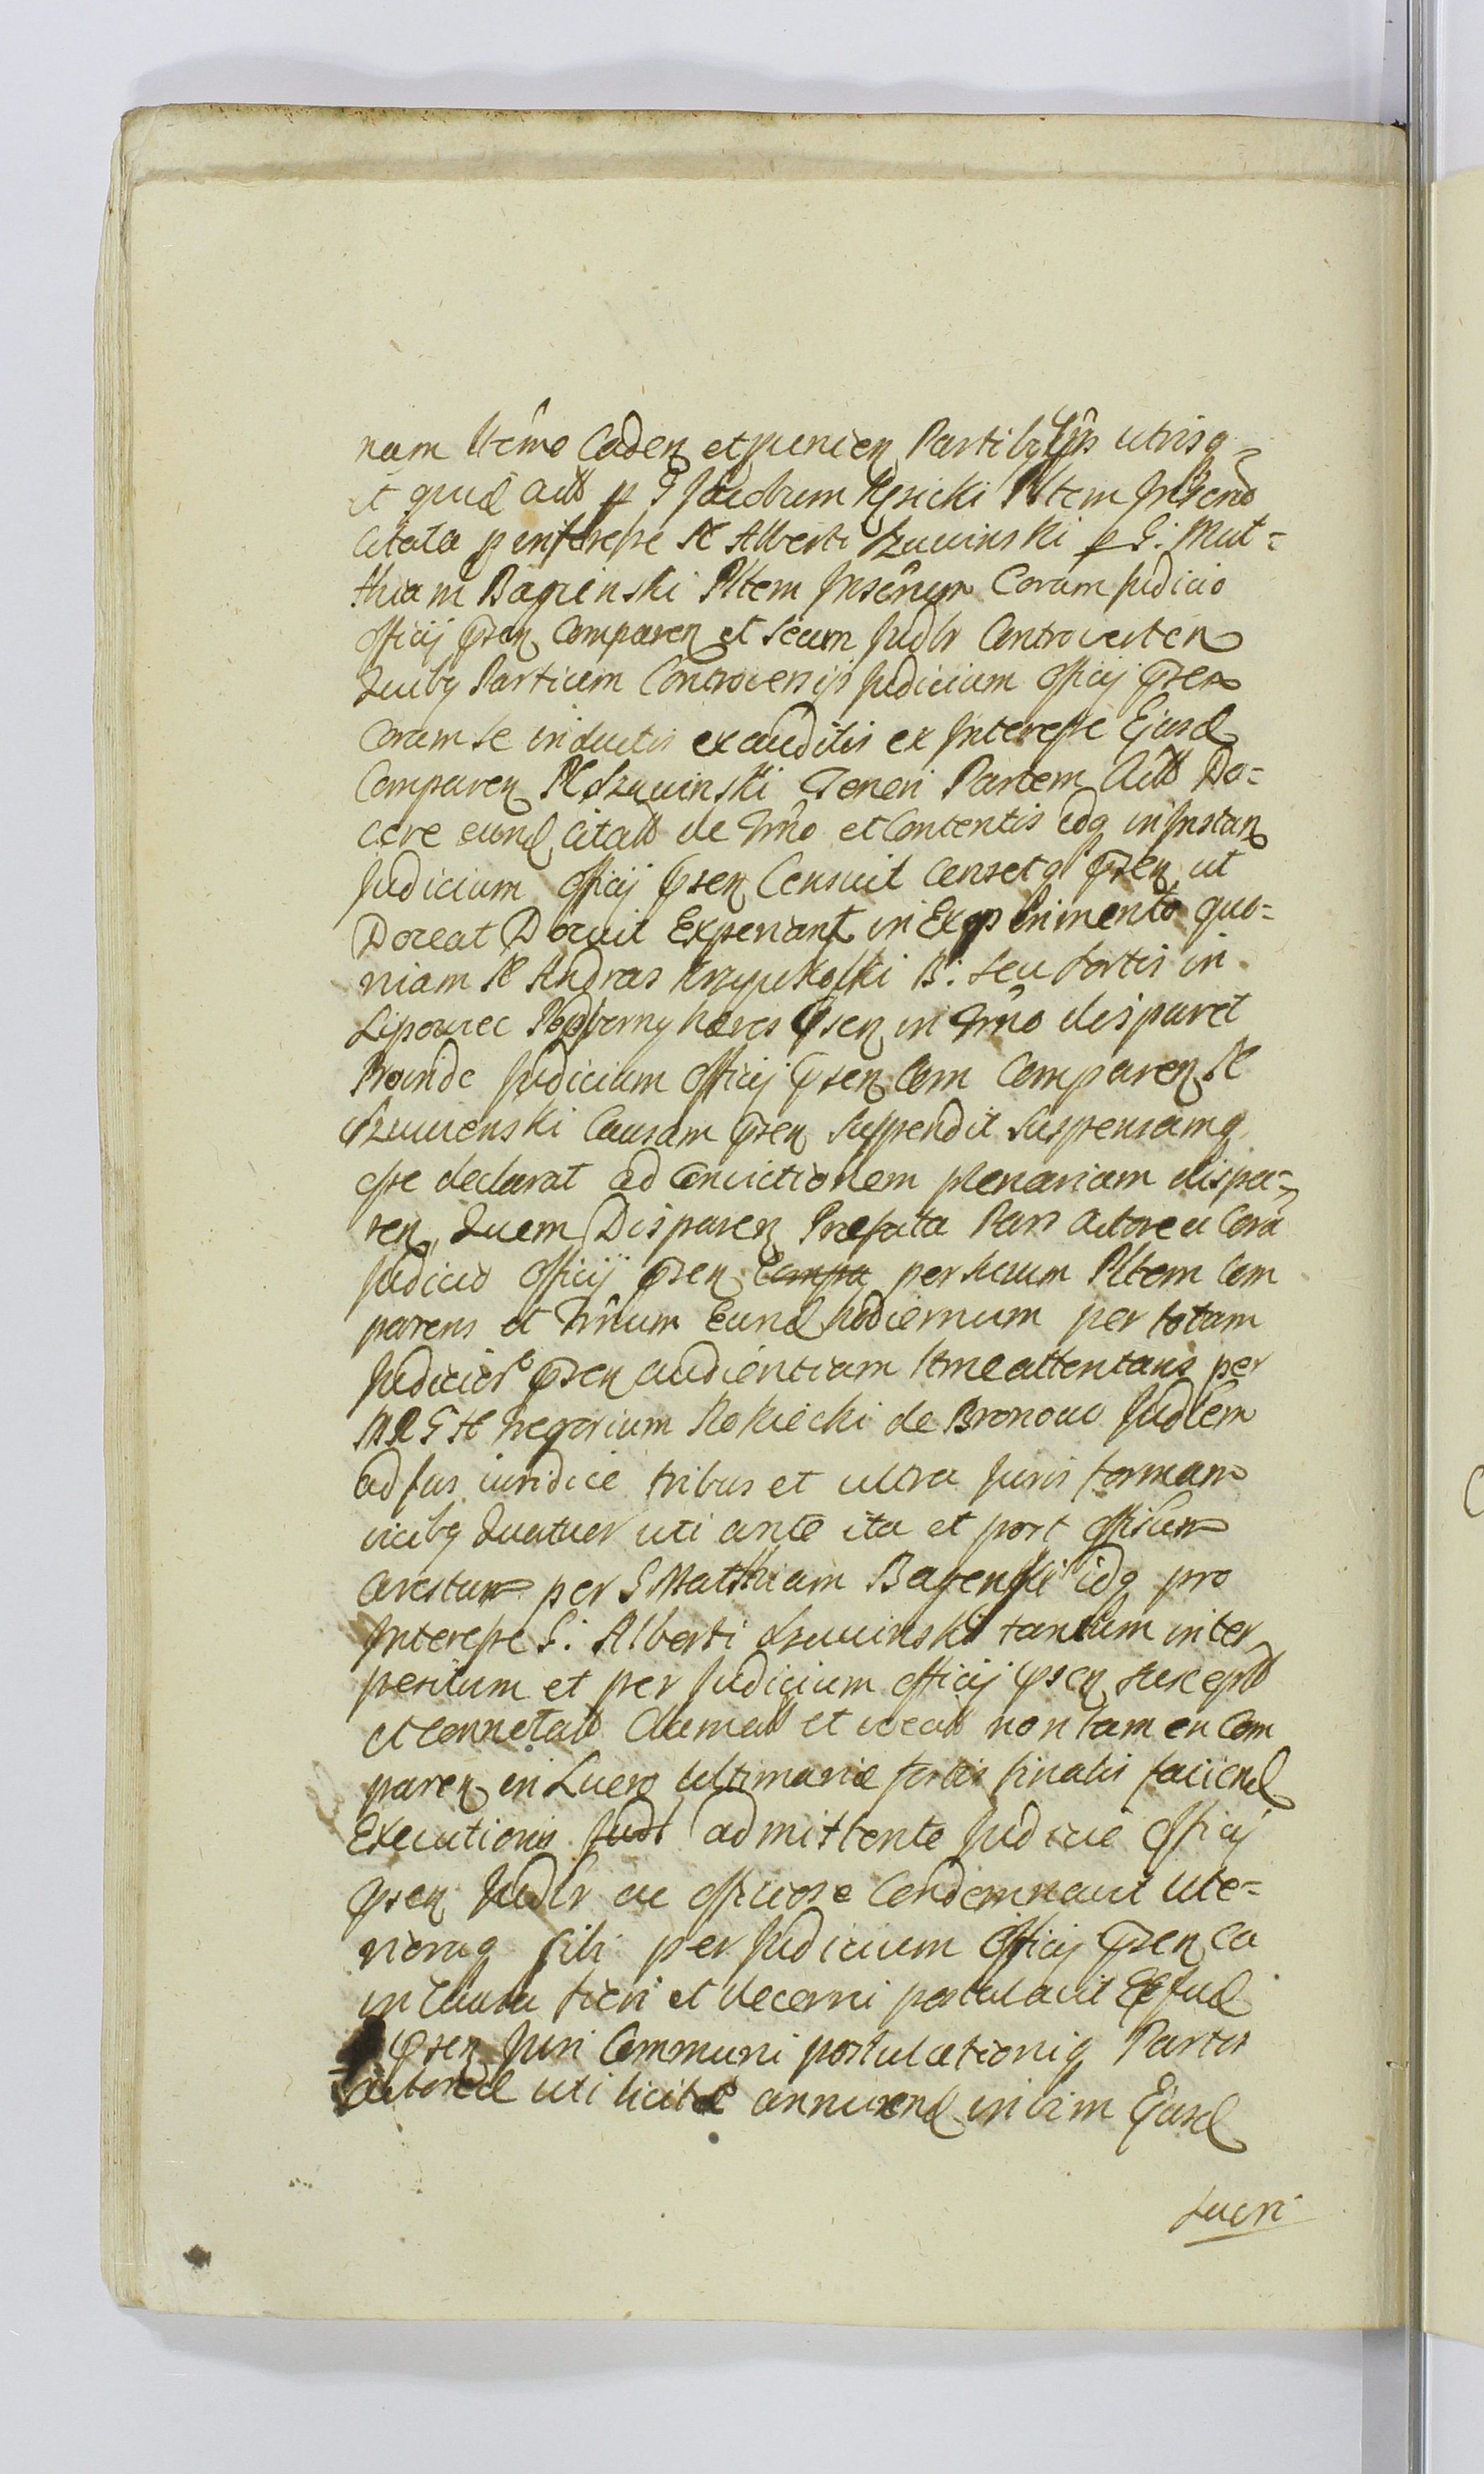 nam ltime Caden et punien Partibq Ipis utrisq
et quid actt p G Jacobum Plltem Insernd
Citata p interesse M Alberti Szuuinski p G: Mat=
thiam Bagienski Plltem Insenum Coram Judicio
officij psen Comparen et secum Judlr Controverten
Quibq Partium Controversijs Judicium officij psen
Coram se inductis exauditis ex Interesse Ejusd
Comparen M Szuuinski Teneri Partem Actt Do=
cere eund Citatt de Trno et Contentis idq in Instan
Judicium officij psen Censuit Censetq psen ut
Doceat Docuit Experiant in Experimento quo=
niam M Andreas B: seu sortis in
Lipowiec hæres psen in Trno disparet
Proinde Judicium officij psen Com Comparen M
Szuuienski Causam psen suspendit suspensamq
esse declarat ad Convictionem plenariam dispa=
ren, Quem Disparen Præfata Pars actorea Cora
Judicio officij psen Compa per suum Plltem Com
parens et Trnum Eund hodiernum per totam
Judicior psen audientiam ltme attentans per
M Gregorium Rokicki de Bronowo Judlem
ad Jus iuridice tribus et ultra Juris formam
vicibq Quatuor uti ante ita et post
arestum per G Matthiam Bagenski idq pro
Interesse G: Alberti Szuuinski tantum inter
positum et per Judicium officij psen suscept
et Connotatt Clamatt et vocatt non tamen Com
paren in Lucro Ultimariæ sortis finalis faciend
Executionis Judt admittente Judicie officij
psen Judlr ac officiose Condemnavit ute=
rioraq sibi per Judicium officij psen ea
in Causa fieri et decerni postulavit Et Jud
psen Juri Communi postulationiq Partis
actoreæ uti licitæ annuend in vim Ejusd
Lucri